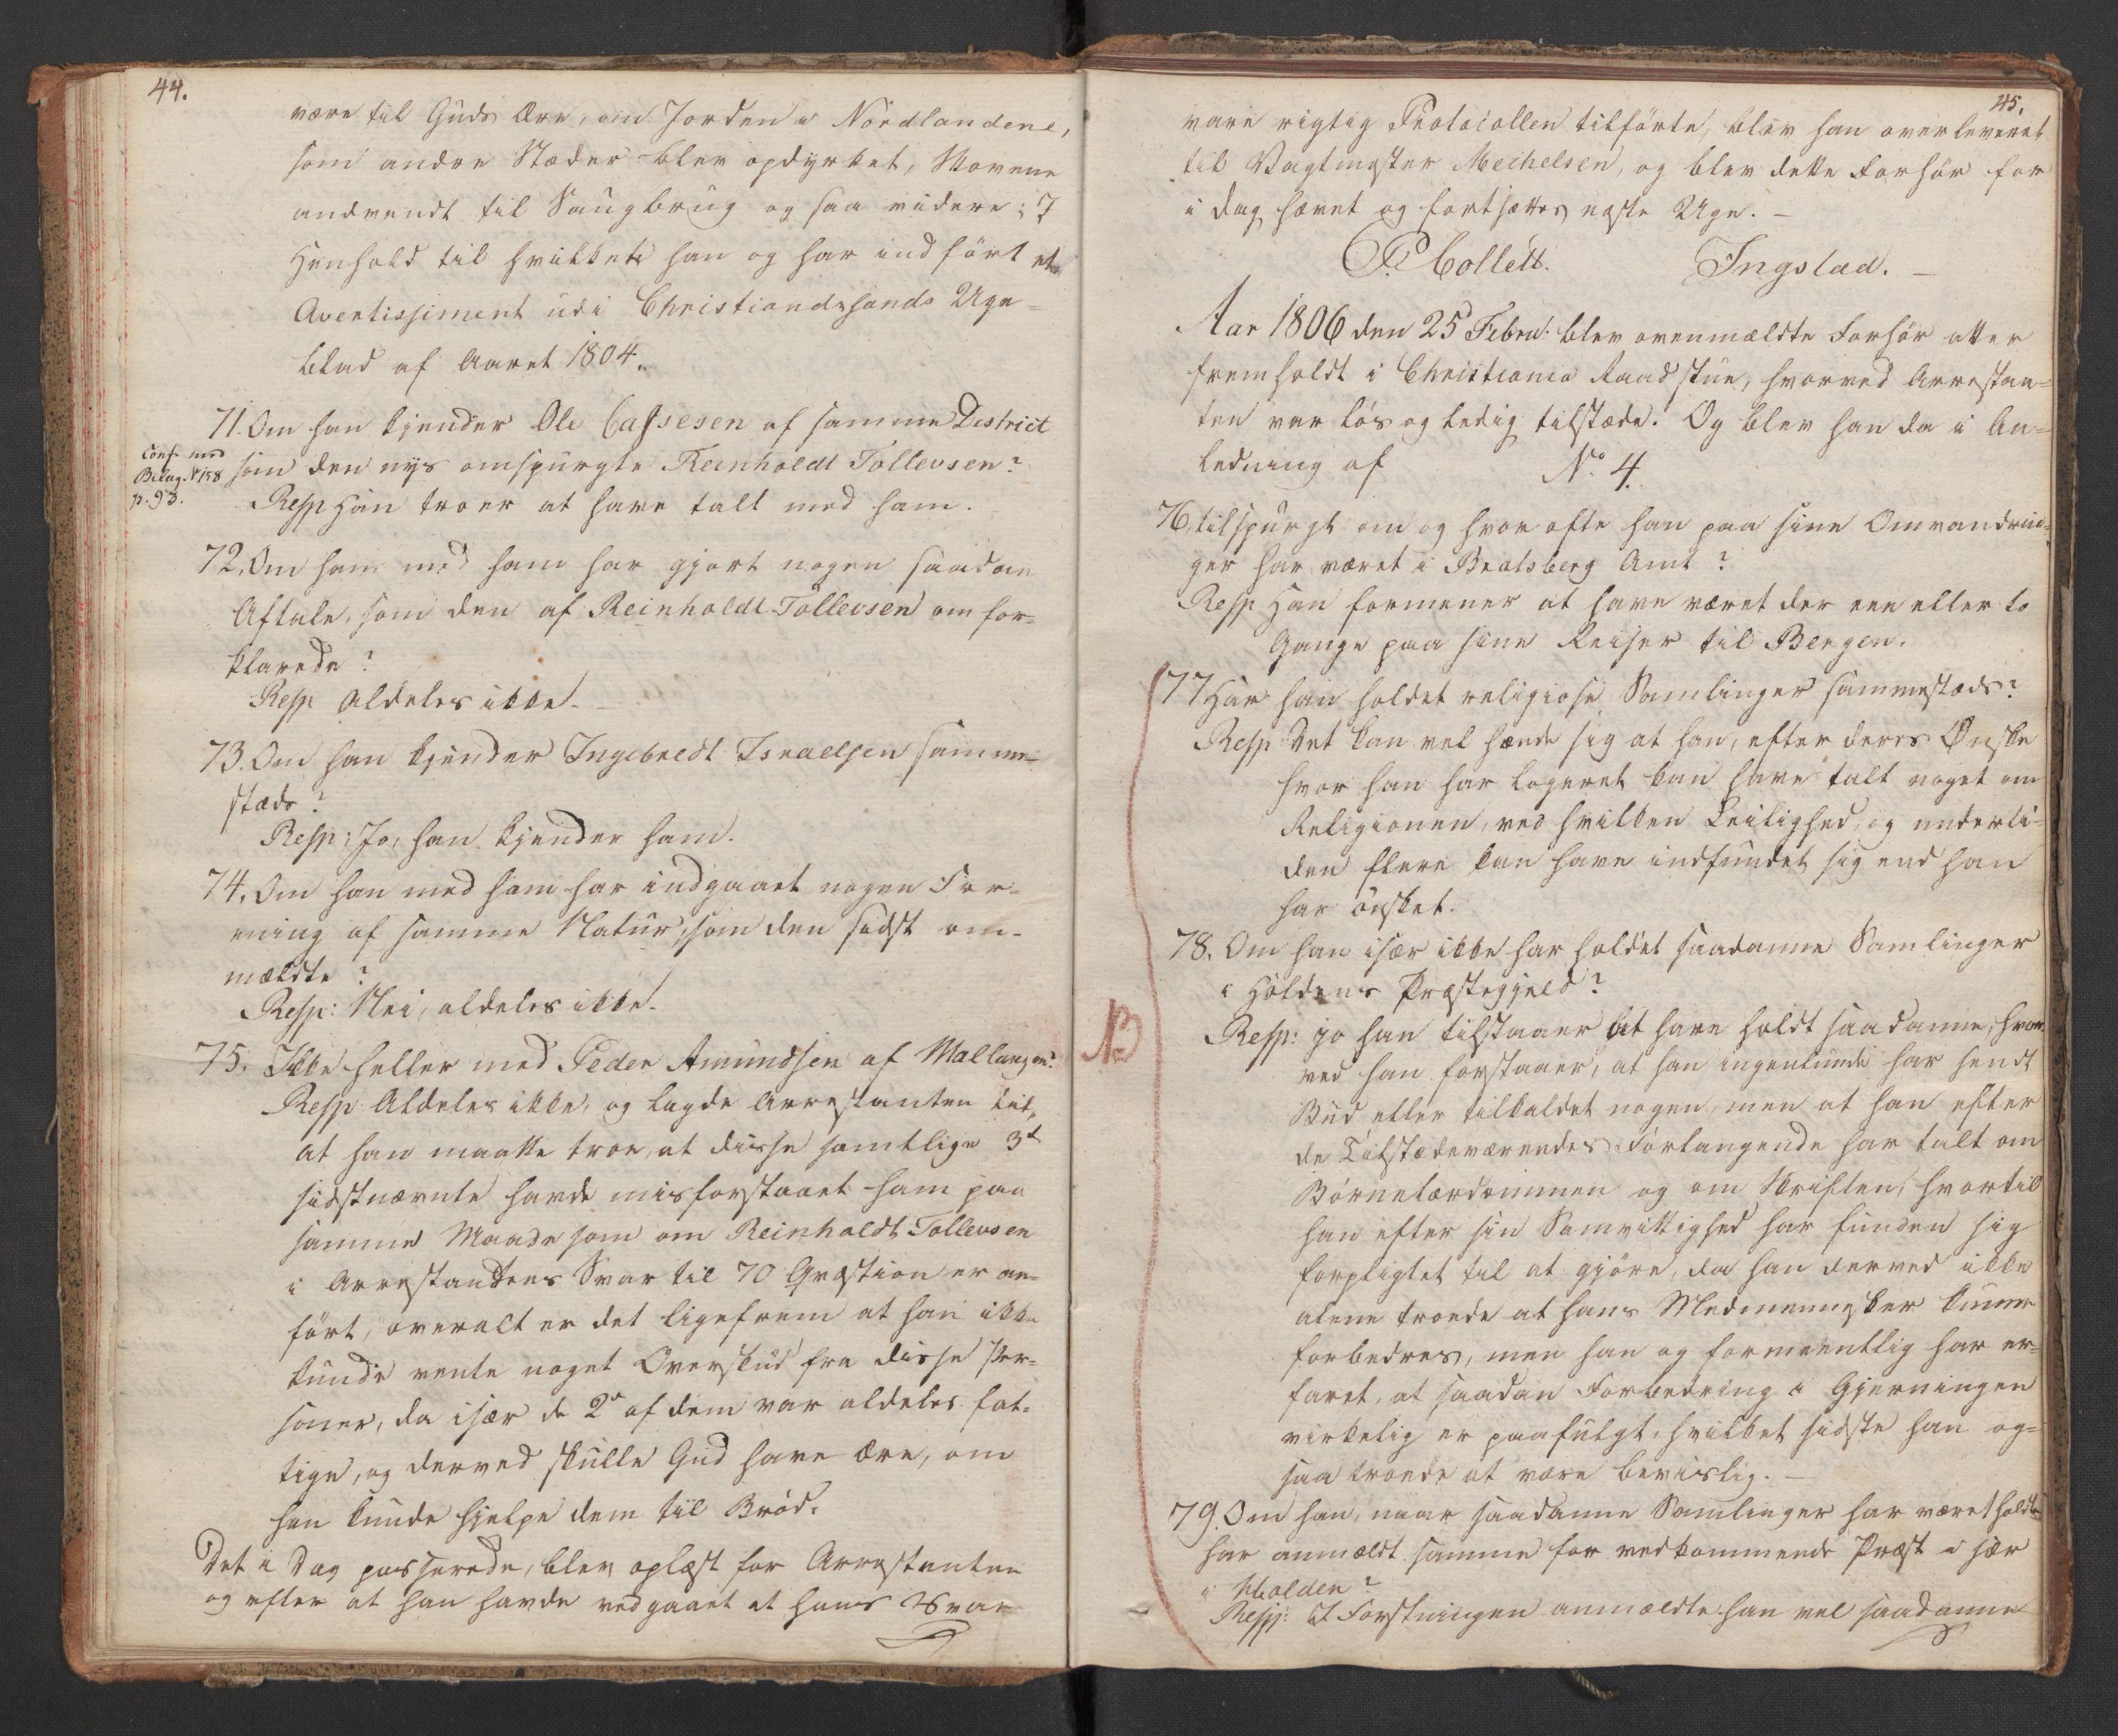 44.
være til Guds Ære, om Jorden i Nordlandene,
som andre Stæder blev opdyrket, Skovene
andvendt til Saugbrug og saa videre; I
Henhold til hvilket han og har indført et
Avertissiment udi Christiandsands Uge=
blad af Aaret 1804.
71. Om han kjender Ole Cassesen af samme District
Conf. med
Bilag. N 158
p. 93.
som den nys omspurgte Reinholdt Tollevsen?
Resp Han troer at have talt med ham.
72. Om han med ham har gjort nogen saadan
Aftale, som den af Reinholdt Tollevsen om for=
klarede?
Resp Aldeles ikke.
73. Om han kjender Ingebredt Israelsen samme=
stæds?
Resp: Jo, han kjender ham.
74. Om han med ham har indgaaet nogen For=
ening af samme Natur, som den sidst om=
mældte?
Resp: Nei, aldeles ikke.
75. Ikke heller med Peder Amundsen af Mallangen?
Resp Aldeles ikke, og lagde Arrestanten til,
at han maatte troe, at disse samtlige 3de
sidstnævnte havde misforstaaet ham paa
samme Maade som om Reinholdt Tollevsen
i Arrestantens Svar til 70 Qvæstion er an=
ført, overalt er det ligefrem at han ikke
kunde vente noget Overskud fra disse Per=
soner, da især de 2de af dem var aldeles fat=
tige, og derved skulle Gud have Ære, om
han kunde hjelpe dem til Brød.
Det i Dag passerede, blev oplæst for Arrestanten
og efter at han havde vedgaaet at hans Svar
45.
vare rigtig Protocollen tilførte, blev han overleveret
til Vagtmester Mechelsen, og blev dette Forhør for
i Dag hævet og fortsættes næste Uge. –
P. Collett. Ingstad. –
Aar 1806 den 25 Febru: blev ovenmældte Forhør atter
fremholdt i Christiania Raadstue, hvorved Arrestan=
ten var løs og ledig tilstæde. Og blev han da i An=
ledning af No 4.
76, tilspurgt om og hvor ofte han paa sine Omvandrin=
ger har været i Bratsberg Amt?
Resp Han formener at have været der een eller to
Gange paa sine Reiser til Bergen.
77 Har han holdet religiøse Samlinger sammestæds?
Resp Det kan vel hænde sig at han, efter deres Ønske
hvor han har logeret kan have talt noget om
Religionen, ved hvilken Leilighed, og underti=
den flere kan have indfundet sig end han
har ønsket.
78. Om han især ikke har holdet saadanne Samlinger
i Holdens Præstegjeld?
NB
Resp: jo han tilstaaer at have holdt saadanne, hvor
ved han forstaaer, at han ingenlunde har sendt
Bud eller tilkaldet nogen, men at han efter
de Tilstædeværendes Forlangende har talt om
Børnelærdommen og om Skriften, hvortil
han efter sin Samvittighed har funden sig
forpligtet til at gjøre, da han derved ikke
alene troede at hans Medmennesker kunne
forbedres, men han og formeentlig har er=
faret, at saadan Forbedring i Gjerningen
virkelig er paafulgt, hvilket sidste han og=
saa troede at være bevislig. –
79. Om han, naar saadanne Samlinger har været holdte
har anmældt samme for vedkommende Præst i sær
i Holden?
Resp: I Forstningen anmældte han vel saadanne